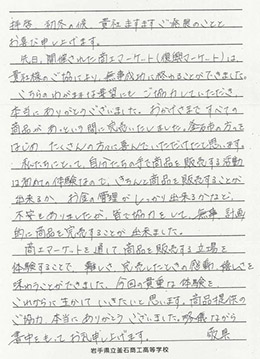 拝啓 初冬の候 貴社ますますご発展のことと
お喜び申し上げます。
先日、開催された商工マーケット(復興マーケット)は、
貴社様のご協力により、無事成功に終わることができました。
こちらのわがままな要望にもご協力していただき、
本当にありがとうございました。おかげさまですべての
商品があっという間に完売いたしました。釜石市の方々を
はじめ たくさんの方々に喜んでいただけたと思います。
私たちにとって、自分たちの手で商品を販売する活動
は初めての体験なので、きちんと商品を販売することが
出来るか お金の管理がしっかり出来るかなど、
不安もありましたが、皆で協力をして、無事 計画
的に商品を完売することが出来ました。
商工マーケットを通して商品を販売する立場を
体験することで、難しさ 完売したときの感動、嬉しさを
味わうことができました。今回の貴重な体験を
これからに生かしていきたいと思います。商品提供の
ご協力、本当にありがとうございました。略儀ながら
書中をもってお礼申し上げます。 敬具
岩手県立釜石商工高等学校